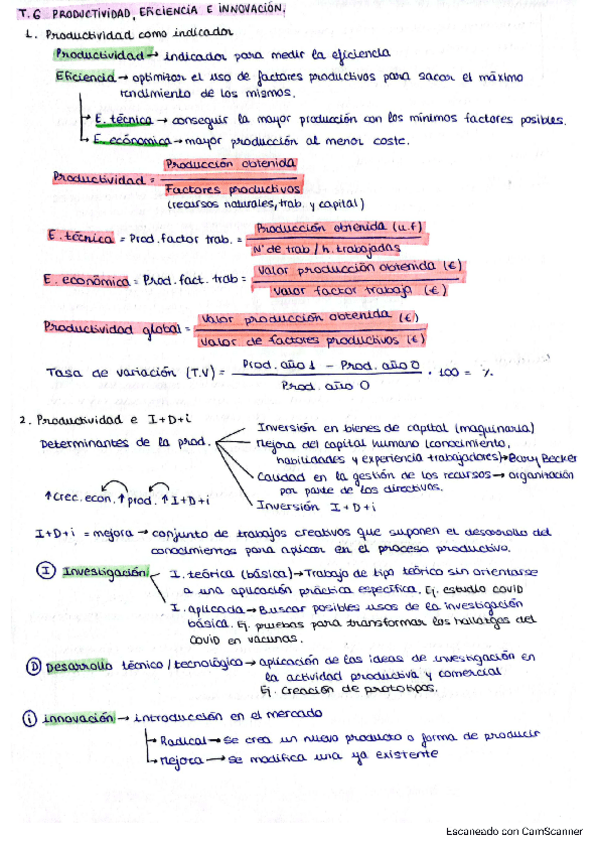 T.6 PRODUCTIVIDAD, EFICIENCIA E INNOVACIÓN.
1. Productividad como indicador
Productividad → indicador para medir la eficiencia
Eficiencia → optimizar el uso de factores productivos para sacar el máximo
rendimiento de los mismos.
→ E. técnica → conseguir la mayor producción con los mínimos factores posibles.
→ E. económica → mayor producción al menor coste.
Productividad = Producción obtenida / Factores productivos
(recursos naturales, trab. y capital)
E. técnica = Prod. factor trab. = Producción obtenida (u.f) / Nº de trab / h. trabajadas
E. económica = Prod. fact. trab = Valor producción obtenida (€) / Valor factor trabajo (€)
Productividad global = Valor producción obtenida (€) / Valor de factores productivos (€)
Tasa de variación (T.V) = Prod. año 1 - Prod. año 0 / Prod. año 0 · 100 = %
2. Productividad e I+D+i
Determinantes de la prod.
Inversión en bienes de capital (maquinaria)
Mejora del capital humano (conocimiento,
habilidades y experiencia trabajadores) → Gary Becker
Calidad en la gestión de los recursos → organización
por parte de los directivos.
Inversión I+D+i
↑ crec. econ. ↑ prod. ↑ I+D+i
I+D+i = mejora → conjunto de trabajos creativos que suponen el desarrollo del
conocimientos para aplicar en el proceso productivo.
I Investigación
I. teórica (básica) → Trabajo de tipo teórico sin orientarse
a una aplicación práctica específica. Ej. estudio covid
I. aplicada → Buscar posibles usos de la investigación
básica. Ej. pruebas para transformar los hallazgos del
covid en vacunas.
D Desarrollo técnico / tecnológico → aplicación de las ideas de investigación en
la actividad productiva y comercial
Ej. Creación de prototipos.
i innovación → introducción en el mercado
→ Radical → se crea un nuevo producto o forma de producir
→ Mejora → se modifica una ya existente
Escaneado con CamScanner